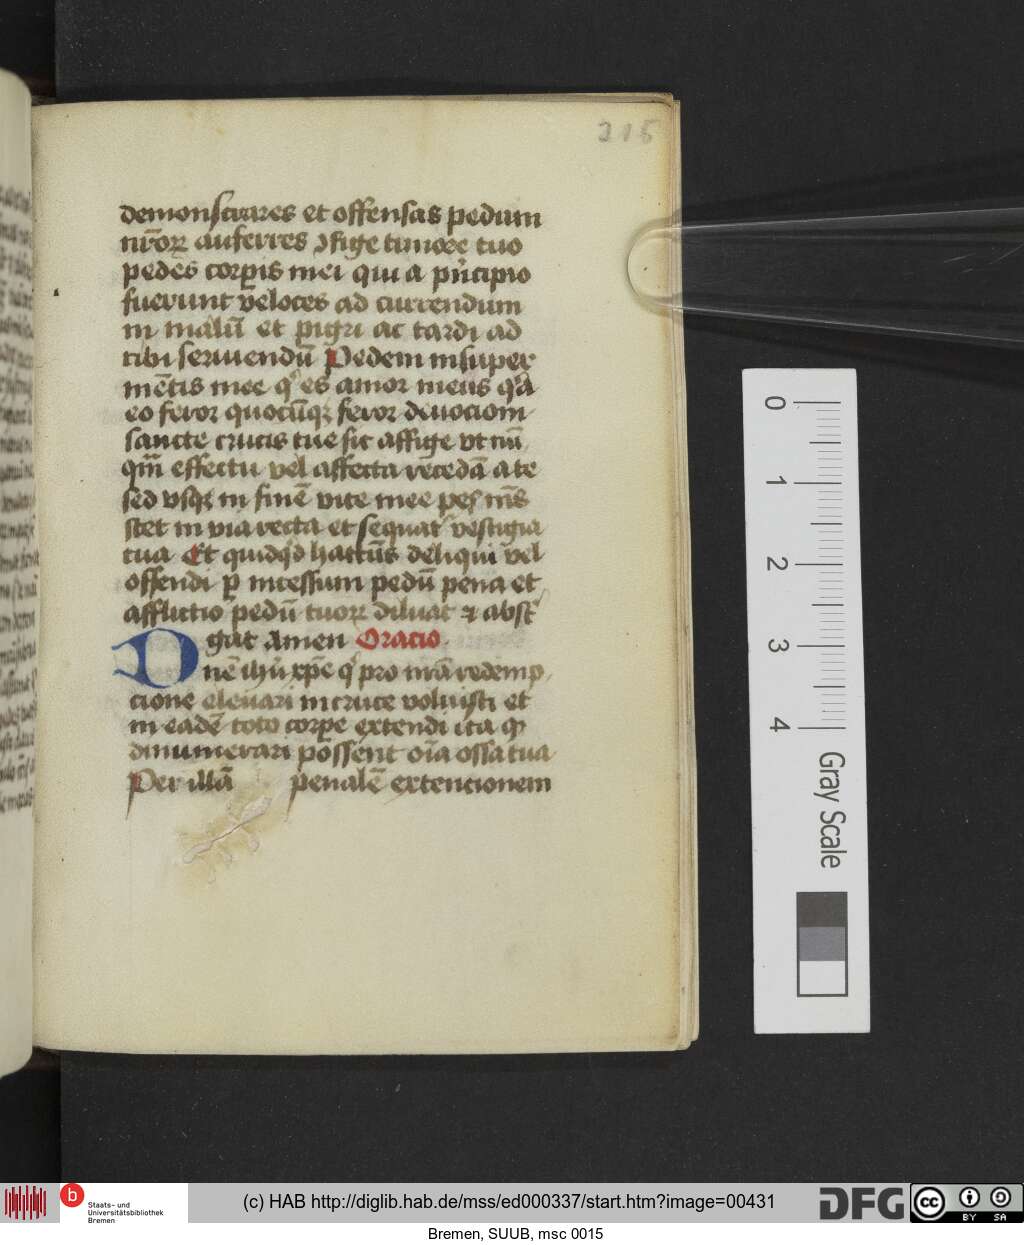 215
demonstrares et offensas pedum
nr̄oꝝ auferres ꝯfige timore tuo
pedes corꝑis mei qui a pͥncipio
fuerunt veloces ad currendum
in malū et pigri ac tardi ad
tibi seruiendū Pedem insuper
mētis mee qͥ es amor meus qͣ
eo feror quocūqꝫ feror deuocioni
sancte crucis tue sic affige vt nū
qm̄ effectu vel affectu recedā a te
sed vsqꝫ in finē vite mee pes mīs
stet in via recta et sequat᷑ vestigia
tua Et quidqͥd hactūs deliqui vel
offendi ꝑ incessum pedū pena et
afflictio pedū tuoꝝ diluat ⁊ abst᷑
gat Amen Oracio
Dnē ih̄u xp̄e qͥ pro nr̄a redemp
cione eleuari in cruce voluisti et
in eadē toto corꝑe extendi ita ꝙ
dinumerari possent oīa ossa tua
Per illā penalē extencionem
0
1
2
3
4
Gray Scale
b
Staats- und
Universitätsbibliothek
Bremen
(c) HAB http://diglib.hab.de/mss/ed000337/start.htm?image=00431
DFG
cc
BY SA
Bremen, SUUB, msc 0015